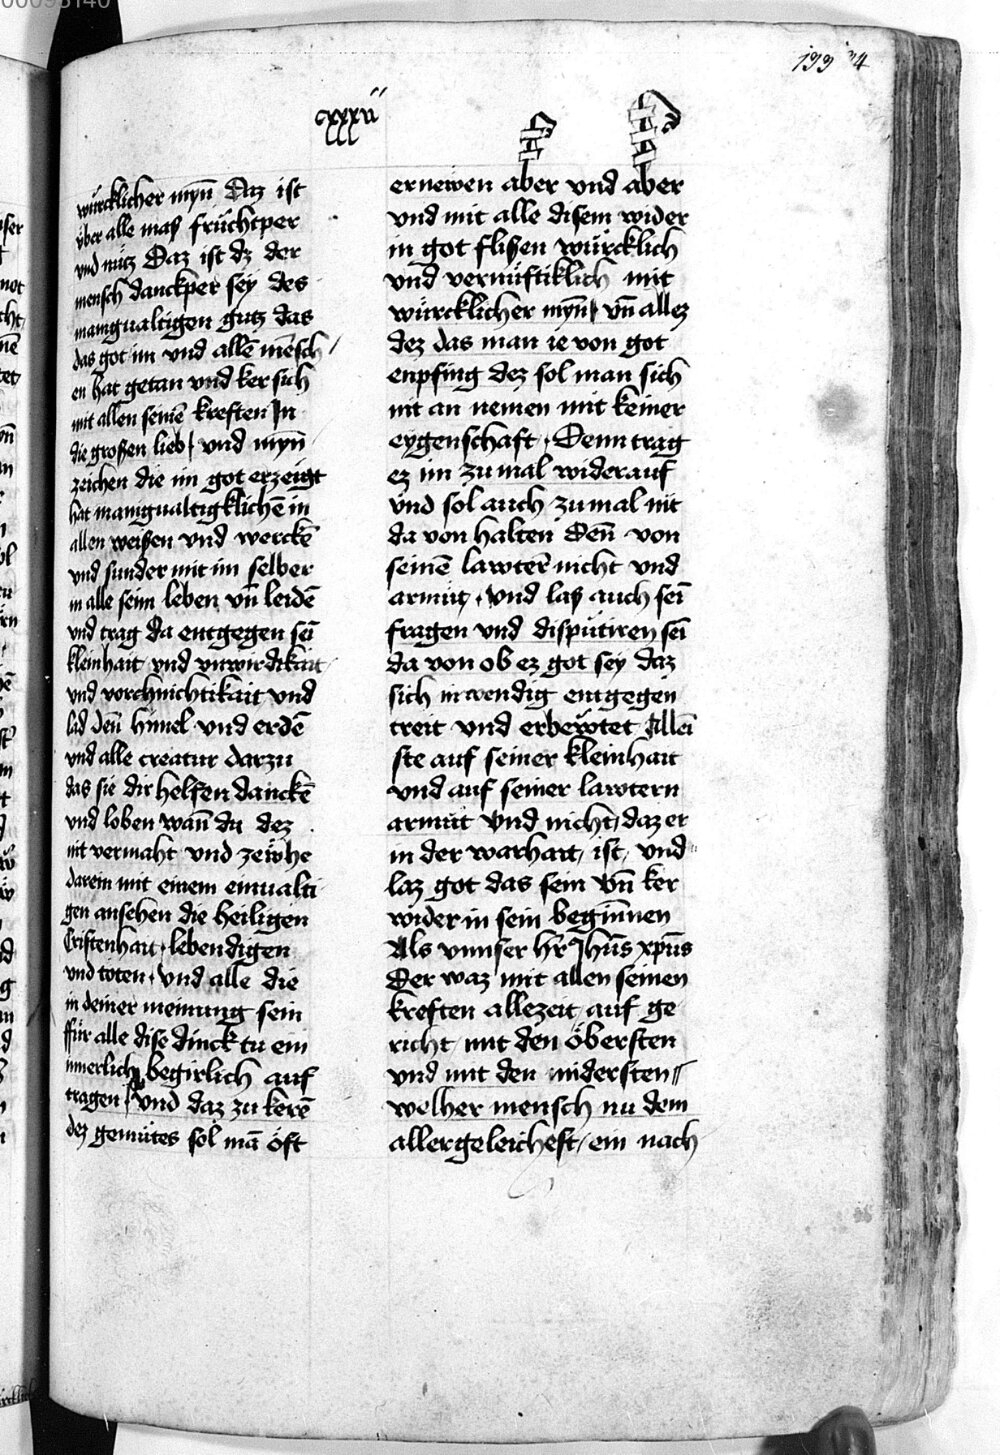 cxxxii
würcklicher myn̄ Daz ist
über alle maß früchtper
und nütz Daz ist dz der
mensch danckper sey des
manigualtigen gutz das
das got im vnd allē mensch /
en hat getan vnd ker sich
mit allen seinē kreften In
die großen lieb / vnd myn̄
zeichen die im got erzeigt
hat manigualtigklichē in
allen weißen vnd werckē
vnd sunder mit im selber
in alle seim leben vn̄ leidē
vnd trag da entgegen sei
kleinhait vnd vnwirdikait
vnd vorchnichtikait vnd
lad den̄ himel vnd erdē
vnd alle creatur darzu
das sie dir helfen danckē
vnd loben wan̄ du dez
nit vermaht vnd zewhe
darein mit einem einualti
gen ansehen die heiligen
Cristenhait lebendigen
vnd toten vnd alle die
in deiner meinung sein
ffür alle dise dinck tu ein
innerlich begirlich auf
tragen / vnd daz zu kerē
dez gemütes sol mā öft
ernewen aber vnd aber
vnd mit alle disem wider
in got flißen würcklich
vnd vernüftiklich mit
würcklicher myn̄ vn̄ allez
dez das man ie von got
enpfing dez sol man sich
nit an nemen mit keiner
eygenschaft Denn trag
ez im zu mal widerauf
vnd sol auch zu mal nit
da von halten den̄ von
seinē lawterē nicht vnd
armüt vnd laß auch sei
fragen vnd disputiren sei
da von ob ez got sey daz
sich inwendig entgegen
treit vnd erbewtet Allei
ste auf seiner kleinhait
vnd auf seiner lawtern
armüt vnd nicht / daz er
in der warhait / ist / vnd
laz got das sein vn̄ ker
wider in sein begin̄nen
Als vnnser hr̄ Jhūs xpūs
Der waz mit allen seinen
kreften allezeit auf ge
richt mit den öbersten
vnd mit den nidersten
welher mensch nu dem
allergeleichest / ein nach